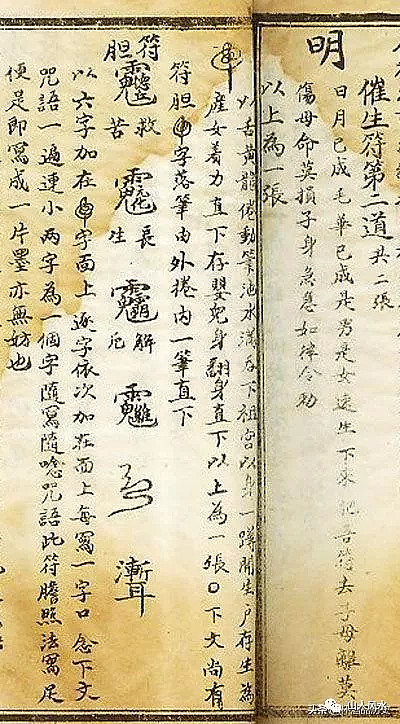 催生符第二道 共二張
明
日月已成毛華已成是男是女速生下來把吾符去子母離莫
傷母命莫損子身急急如律令勅
以上為一張
以舌黃龍倦動筆池水滿吞下祖宮以身一蹲開生戶存生為
產女着力直下存嬰兒身翻身直下以上為一張〇下文尚有
符胆字落筆由外捲內一筆直下
符胆 救苦 長生 解厄
以六字加在字面上逐字依次加在面上每寫一字口念下文
咒語一遍連小兩字為一個字隨寫隨唸咒語此符膽照法寫足
便是即寫成一片墨亦無妨也
山人风水